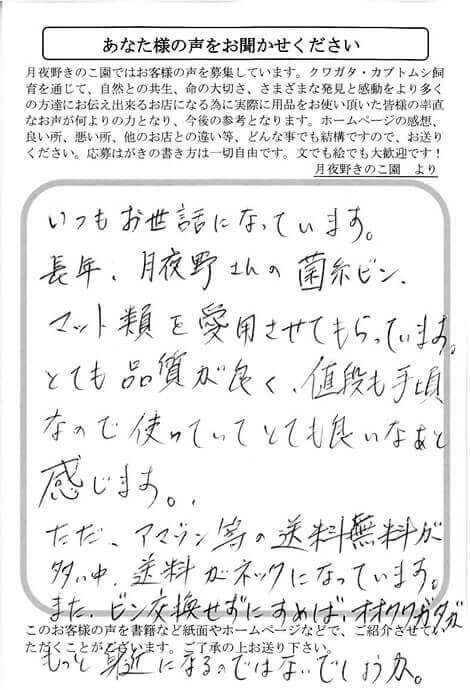 あなた様の声をお聞かせください
月夜野きのこ園ではお客様の声を募集しています。クワガタ・カブトムシ飼
育を通じて、自然との共生、命の大切さ、さまざまな発見と感動をより多く
の方達にお伝え出来るお店になる為に実際に用品をお使い頂いた皆様の率直
なお声が何よりの力となり、今後の参考となります。ホームページの感想、
良い所、悪い所、他のお店との違い等、どんな事でも結構ですので、お送り
ください。応募はがきの書き方は一切自由です。文でも絵でも大歓迎です！
月夜野きのこ園　より
いつもお世話になっています。
長年、月夜野さんの菌糸ビン、
マット類を愛用させてもらっています。
とても品質が良く、値段も手頃
なので使っていてとても良いなあと
感じます。
ただ、アマゾン等の送料無料が
多い中、送料がネックになっています。
また、ビン交換せずにすめば、オオクワガタが
このお客様の声を書籍など紙面やホームページなどで、ご紹介させてい
ただくことがございます。ご了承の上お送り下さい。
もっと身近になるのではないでしょうか。